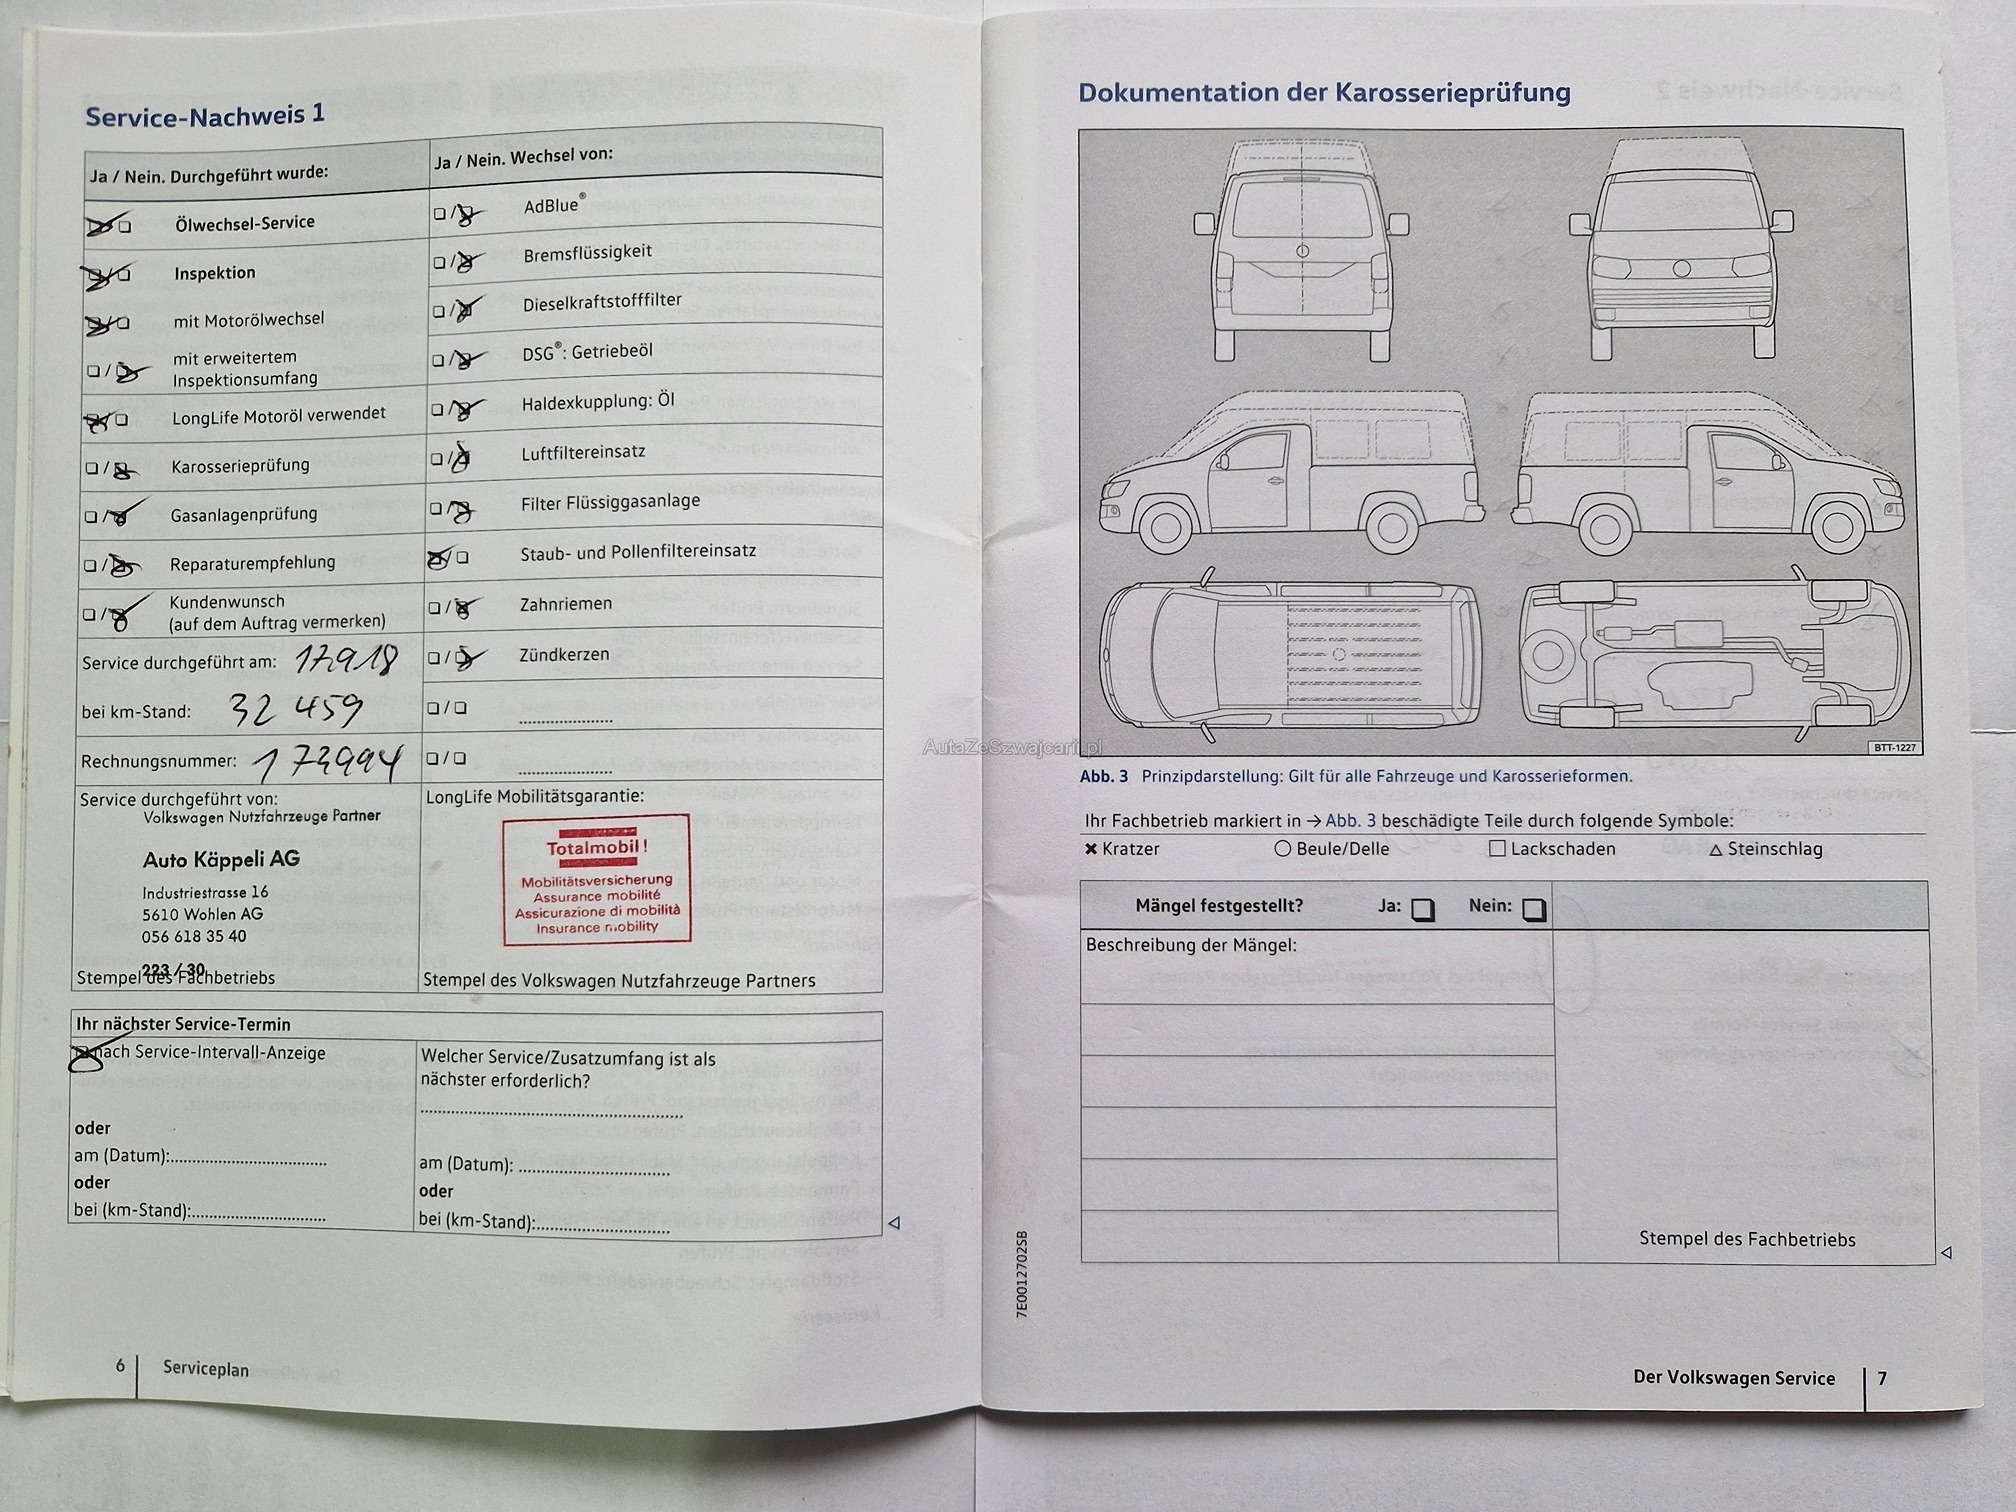 Service-Nachweis 1
Ja / Nein. Durchgeführt wurde:
Ölwechsel-Service
Inspektion
mit Motorölwechsel
mit erweitertem
Inspektionsumfang
LongLife Motoröl verwendet
Karosserieprüfung
Gasanlagenprüfung
Reparaturempfehlung
Kundenwunsch
(auf dem Auftrag vermerken)
Service durchgeführt am: 17.9.18
bei km-Stand: 32 459
Rechnungsnummer: 173994
Ja / Nein. Wechsel von:
AdBlue®
Bremsflüssigkeit
Dieselkraftstofffilter
DSG®: Getriebeöl
Haldexkupplung: Öl
Luftfiltereinsatz
Filter Flüssiggasanlage
Staub- und Pollenfiltereinsatz
Zahnriemen
Zündkerzen
Service durchgeführt von:
Volkswagen Nutzfahrzeuge Partner
Auto Käppeli AG
Industriestrasse 16
5610 Wohlen AG
056 618 35 40
223 / 30
Stempel des Fachbetriebs
LongLife Mobilitätsgarantie:
Totalmobil !
Mobilitätsversicherung
Assurance mobilité
Assicurazione di mobilità
Insurance mobility
Stempel des Volkswagen Nutzfahrzeuge Partners
Ihr nächster Service-Termin
nach Service-Intervall-Anzeige
oder
am (Datum):
oder
bei (km-Stand):
Welcher Service/Zusatzumfang ist als
nächster erforderlich?
am (Datum):
oder
bei (km-Stand):
6 Serviceplan
Dokumentation der Karosserieprüfung
BTT-1227
AutaZeSzwajcarii.pl
Abb. 3 Prinzipdarstellung: Gilt für alle Fahrzeuge und Karosserieformen.
Ihr Fachbetrieb markiert in → Abb. 3 beschädigte Teile durch folgende Symbole:
✖ Kratzer ○ Beule/Delle □ Lackschaden △ Steinschlag
Mängel festgestellt? Ja: Nein:
Beschreibung der Mängel:
Stempel des Fachbetriebs
7E0012702SB
Der Volkswagen Service 7